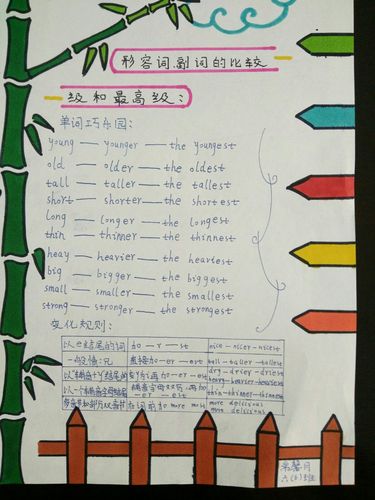 形容词、副词的比较
级和最高级:
单词巧乐园:
young — younger — the youngest
old — older — the oldest
tall — taller — the tallest
short — shorter — the shortest
long — longer — the longest
thin — thinner — the thinnest
heavy — heavier — the heaviest
big — bigger — the biggest
small — smaller — the smallest
strong — stronger — the strongest
变化规则:
以e结尾的词 加 — r — st nice - nicer - nicest
一般情况 直接加 -er -est tall - taller - tallest
以"辅音+y"结尾的 变y为i再加 -er -est dry - drier - driest
heavy - heavier - heaviest
以一个辅音字母结尾 辅音字母双写,再加 -er -est thin - thinner - thinnest
多音节和部分双音节 在词前加 more most more delicious
most delicious
六(6)班